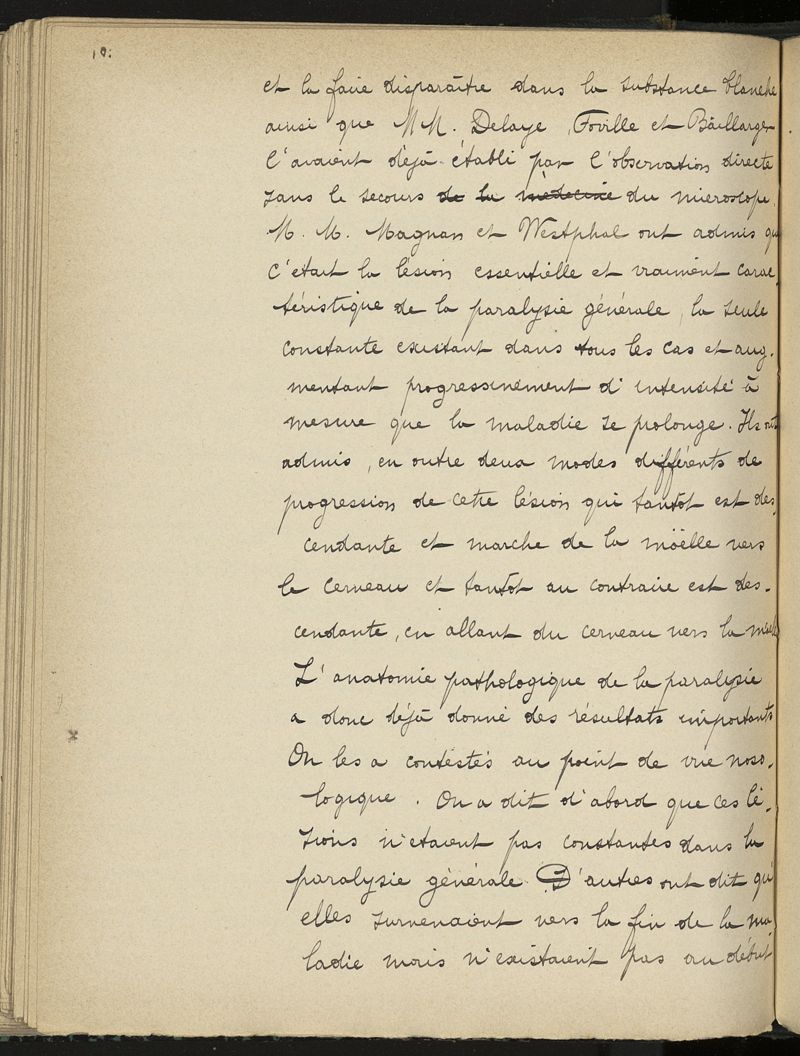 10.
et la faire disparaître dans la substance blanche
ainsi que MM. Delaye, Foville et Baillarger
l'avaient déjà établi par l'observation directe
sans le secours de la médecine du microscope.
M. M. Magnan et Westphal ont admis que
c'était la lésion essentielle et vraiment carac-
téristique de la paralysie générale, la seule
constante existant dans tous les cas et aug-
mentant progressivement d'intensité à
mesure que la maladie se prolonge. Ils ont
admis, en outre deux modes différents de
progression de cette lésion qui tantôt est des-
cendante et marche de la möelle vers
le cerveau et tantôt au contraire est des-
cendante, en allant du cerveau vers la
L'anatomie pathologique de la paralysie
a donc déjà donné des résultats importants
On les a contestés au point de vue noso-
logique. On a dit d'abord que ces lé-
sions n'etaient pas constantes dans la
paralysie générale. D'autres ont dit qu'
elles survenaient vers la fin de la ma
ladie mais n'existaient pas au début